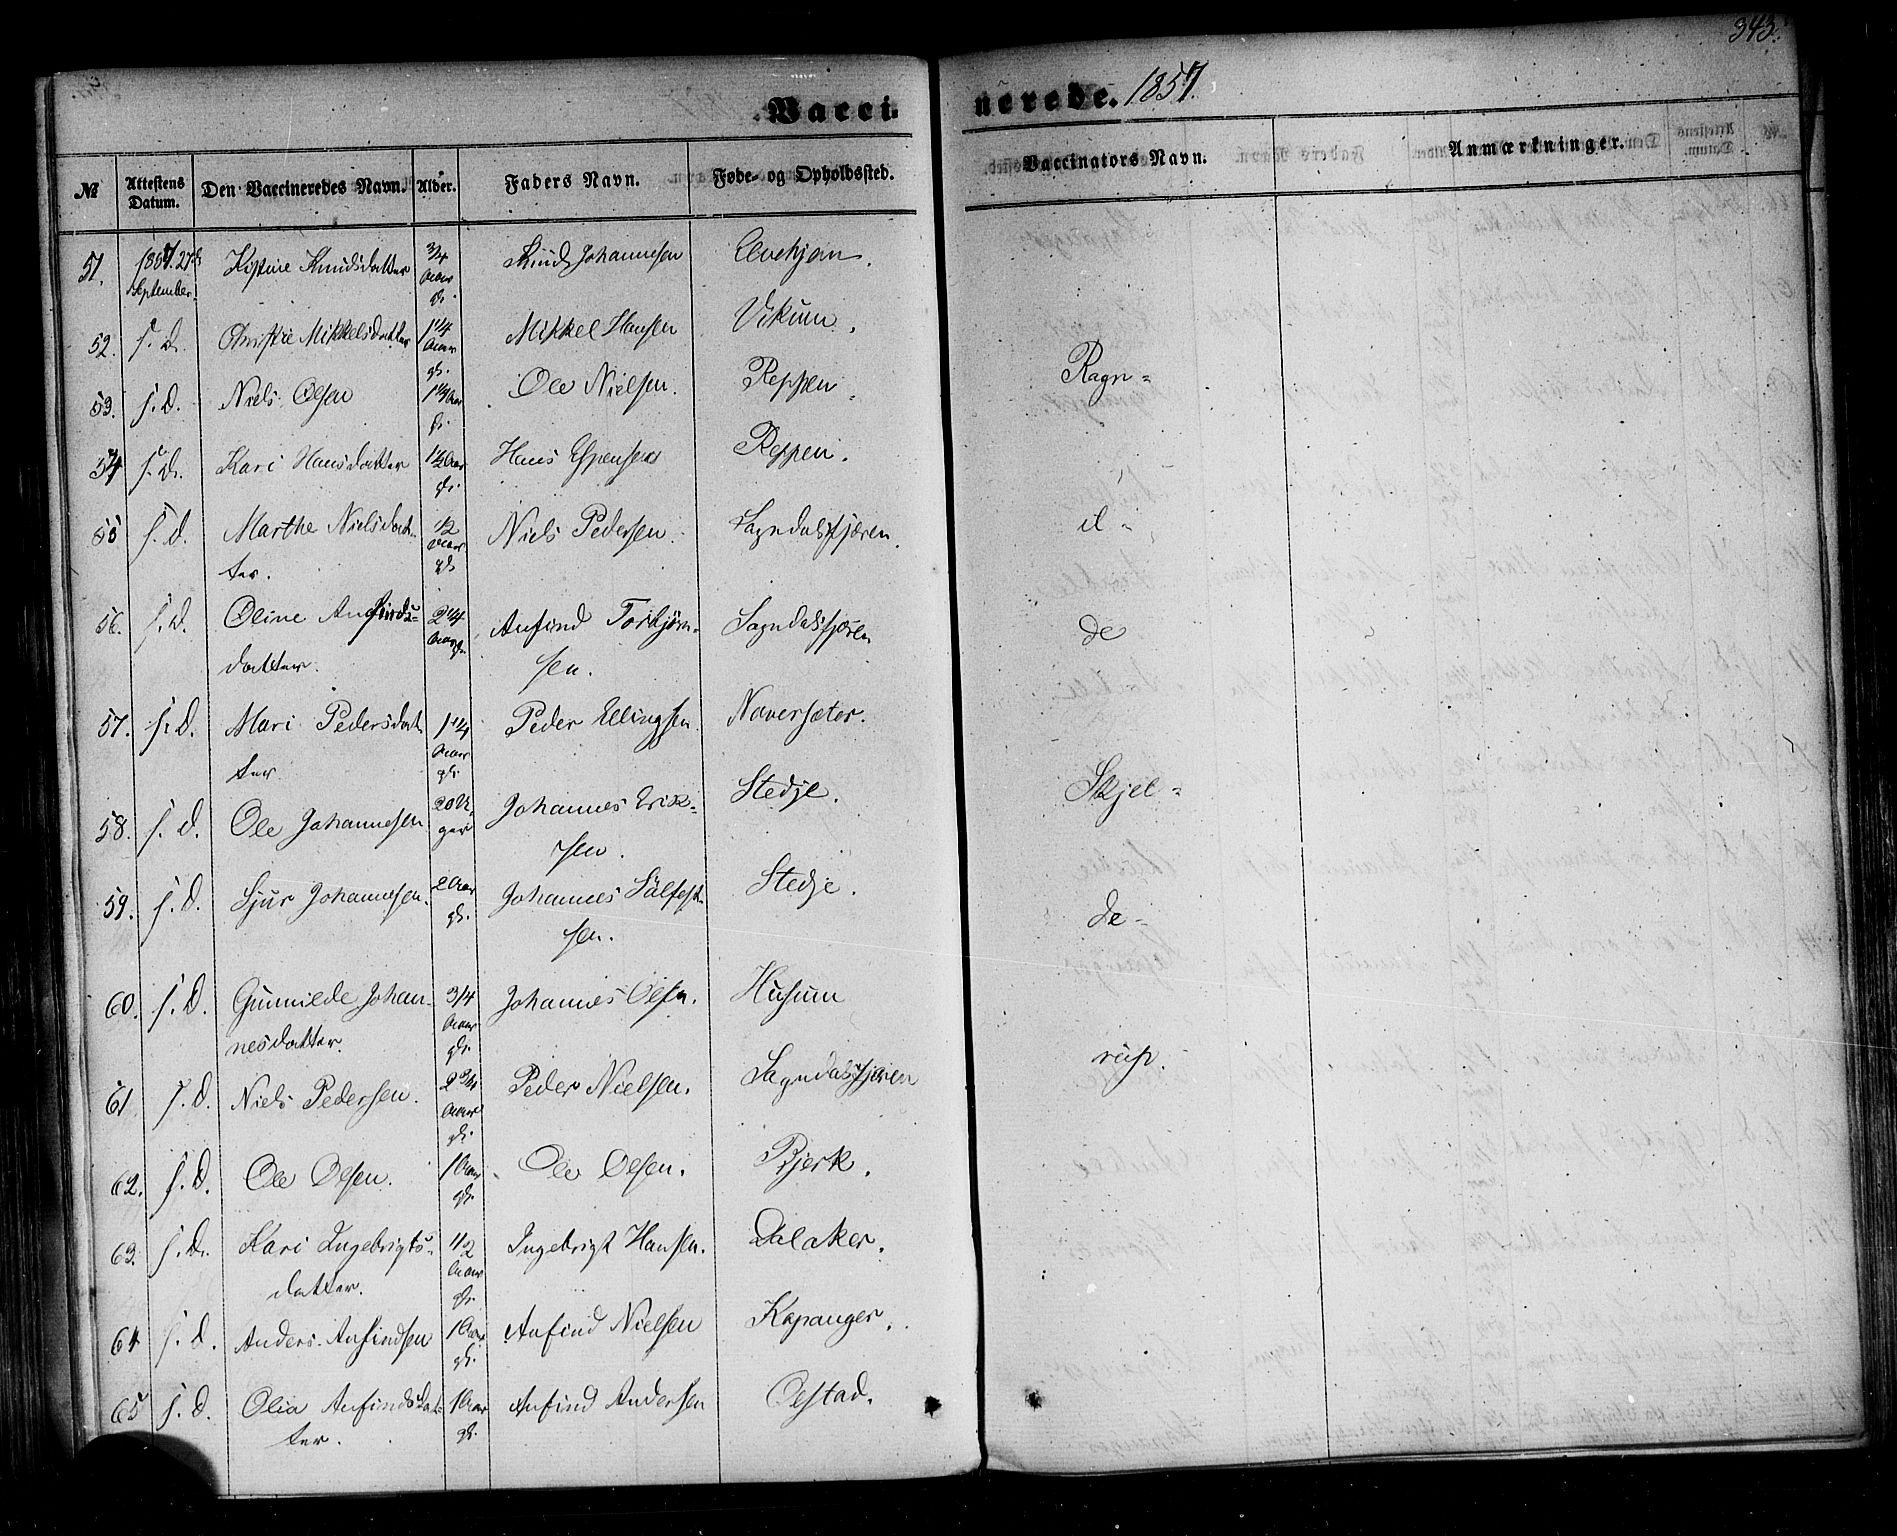 343.
Vacci-
nerede. 1857.
№ Attestens Datum. Den Vaccineredes Navn. Alder. Faders Navn. Føde- og Opholdssted.
Vaccinators Navn. Anmærkninger.
51. 1857. 27de September. Kistine Knudsdatter 3/4 Aar gl. Knud Johannesen Elvehjem.
52. s. D. Christie Mikkelsdatter 1 1/4 Aar gl. Mikkel Hansen Vikum.
53. s. D. Niels Olsen 1 1/4 Aar gl. Ole Nielsen. Reppen.
54 s. D. Kari Hansdatter 1 1/2 Aar gl. Hans Espensen Reppen.
55 s. D. Marthe Nielsdat-
ter. 1/2 Aar gl. Niels Pedersen. Sagndalsfjæren.
56. s. D. Oline Anfinds-
datter. 2 1/4 Aar gl. Anfind Torbjørn-
sen. Sagndalsfjæren
57. s. D. Mari Pedersdat
ter 1 1/4 Aar gl. Peder Ellingsen Noversæter.
58. s. D. Ole Johannesen 20 Uger Johannes Erik-
sen. Stedje.
59. s. D. Sjur Johannesen. 2 Aar gl. Johannes Sålfest-
sen. Stedje.
60. s. D. Gunnilde Johan-
nesdatter. 3/4 Aar gl. Johannes Olsen. Husum
61 s. D. Niels Pedersen. 2 3/4 Aar gl. Peder Nielsen. Sagndalsfjæren
62. s. D. Ole Olsen. 1 Aar gl. Ole Olsen. Bjerk.
63. s. D. Kari Ingebrigts-
datter. 1/2 Aar gl. Ingebrigt Hansen. Dalaker.
64 s. D. Anders Anfindsen 1 Aar gl. Anfind Nielsen Kapanger.
65 s. D. Olia Anfindsdat-
ter. 1 Aar gl. Anfind Andersen Oestad.
Ragn-
il-
de
Skjel-
de-
rup.